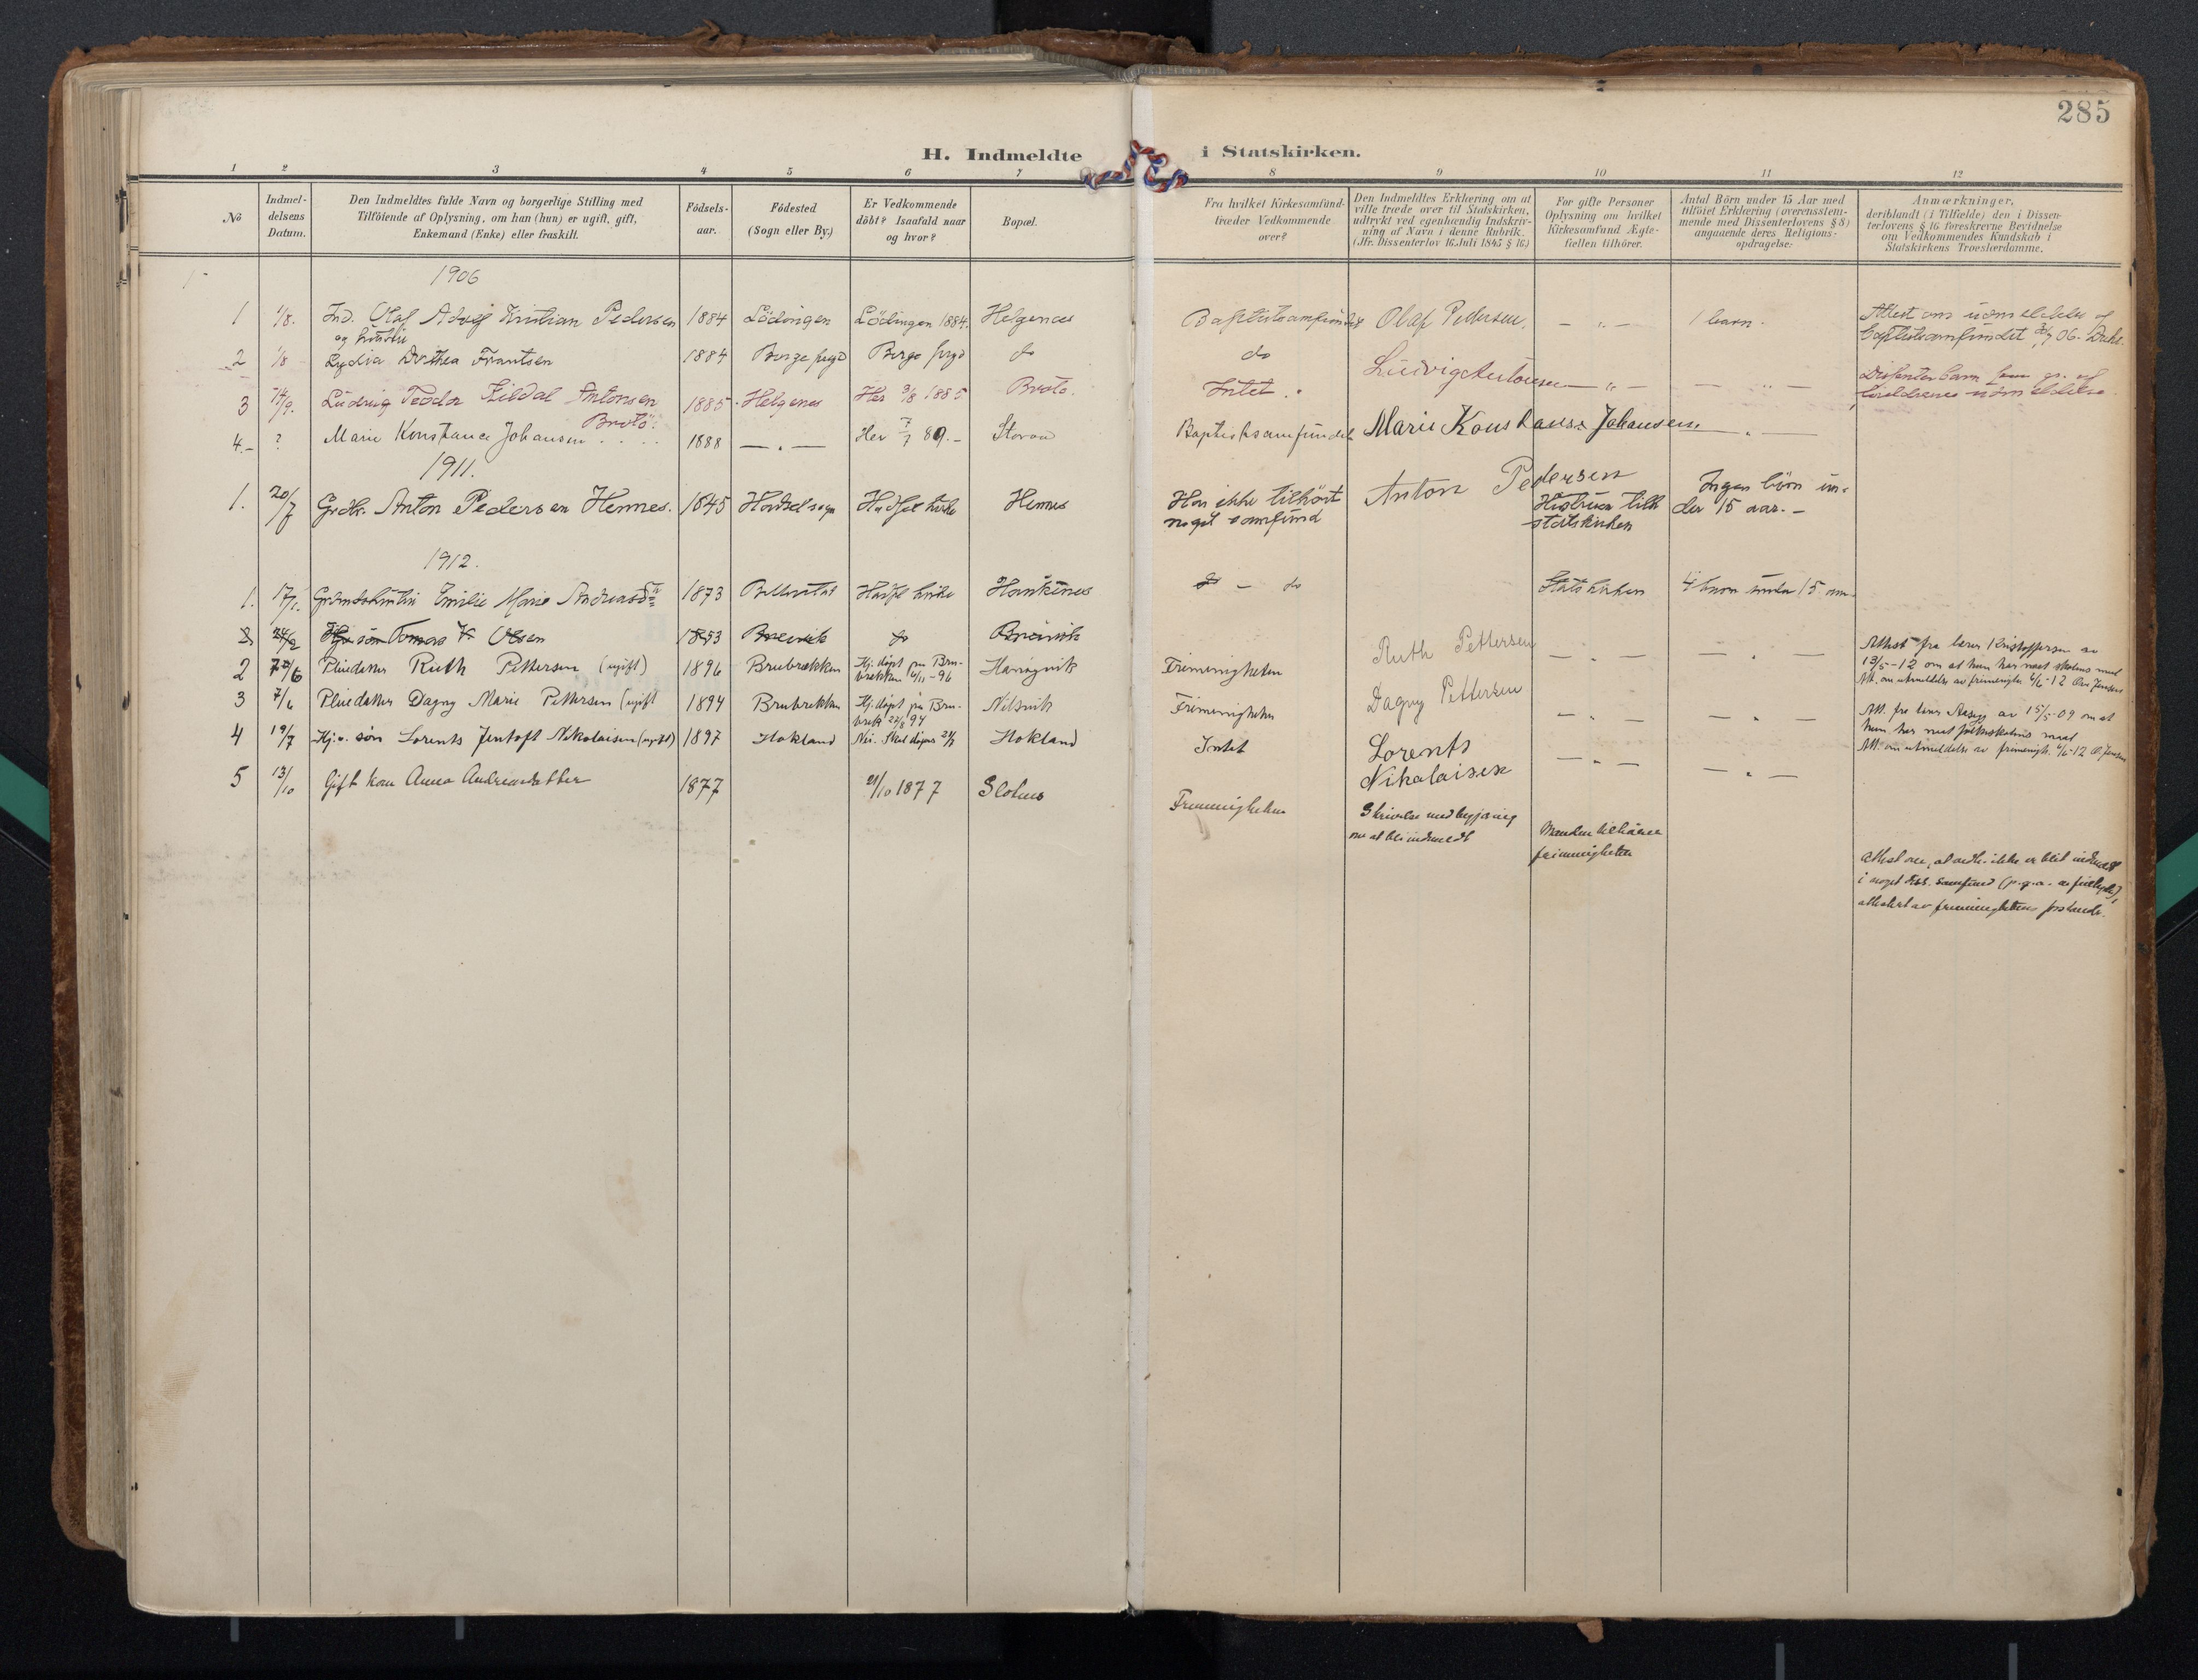 285
H. Indmeldte i Statskirken.
1 2 3 4 5 6 7 8 9 10 11 12
No
Indmel-
delsens
Datum.
Den Indmeldtes fulde Navn og borgerlige Stilling med
Tilföiende af Oplysning, om han (hun) er ugift, gift,
Enkemand (Enke) eller fraskilt.
Födsels-
aar.
Födested
(Sogn eller By.)
Er Vedkommende
döbt? Isaafald naar
og hvor?
Bopæl.
Fra hvilket Kirkesamfund
træder Vedkommende
over?
Den Indmeldtes Erklæring om at
ville træde over til Statskirken,
udtrykt ved egenhændig Indskriv-
ning af Navn i denne Rubrik.
(Jfr. Dissenterlov 16. Juli 1845 § 16.)
For gifte Personer
Oplysning om hvilket
Kirkesamfund Ægte-
fællen tilhörer.
Antal Börn under 15 Aar med
tilföiet Erklæring (overensstem-
mende med Dissenterlovens § 8)
angaaende deres Religions-
opdragelse:
Anmærkninger,
deriblandt (i Tilfælde) den i Dissen-
terlovens § 16 foreskrevne Bevidnelse
om Vedkommendes Kundskab i
Statskirkens Troeslærdomme.
1906
1 1/8. Ind. Olaf Adolf Kristian Pedersen 1884 Lödingen Lödingen 1884. Helgenes
og hustru
Baptistsamfundet Olaf Pedersen. — " — 1 barn.
Attest om udmeldelse af
Baptistsamfundet 06.
2 1/8 Lydia Dorthea Frantsen 1884 Borge prgd Borge prgd do
do
3 14/9. Ludvig Teodor Kildal Antonsen 1885. Helgenes Her 9/8 1885 Brotö.
Brotö.
Intet. Ludvig Antonsen — " — — " —
Dissenterbarn
forældrenes udmeldelse.
4.- ? Marie Konstance Johansen 1888 — " — Her 89.-
Baptistsamfundet Marie Konstanse Johansen — " —
1911.
1. 20/7 Grdbr. Anton Pedersen Hennes. 1845 Hadsel sogn Hadsel kirke Hennes
Har ikke tilhört
noget samfund
Anton Pedersen
Hustruen tilh
statskirken
Ingen börn un-
der 15 aar. -
1912.
1. 17/1. Emilie Marie 1873 Hadsel kirke
do - do Statskirken 4 barn under 15 aar
2 24/2 Tomas K Olsen 1853 do
2 7/6 Pleiedatter Ruth Pettersen (ugift) 1896 Brubrekken Hj.döpt paa Bru-
brekken 6/11-96
Frimenigheten Ruth Pettersen — " — — " —
Attest fra lærer Kristoffersen av
13/5-12 om at hun har naat skolens maal
Att. om utmeldelse av frimenigh. 6/6-12
3 7/6 Pleiedatter Dagny Marie Pettersen (ugift 1894 Brubrekken Hj.döpt på Bru-
brekk 94
Frimenigheten Dagny Pettersen — " — — " —
Att. fra lærer av 15/5-09 om at
hun har naat folkeskolens maal
Att. om utmeldelse av frimenigh. 6/6-12
4 19/7 Hj.v. sön Lorents Jentoft Nikolaisen (ugift) 1897 Hokland Nei. Skal döpes 21/7 Hokland
Intet Lorents
Nikolaisen
— " — — " —
5 13/10 Gift kone Anna Andreasdatter 1877 21/10 1877
Frimenigheten
Skrivelse med begjæring
om at bli indmeldt
Manden tilhörer
frimenigheten
Attest om, at vedk. ikke er blit indmeldt
i noget diss. samfund
attestert av frimenighetens forstander.